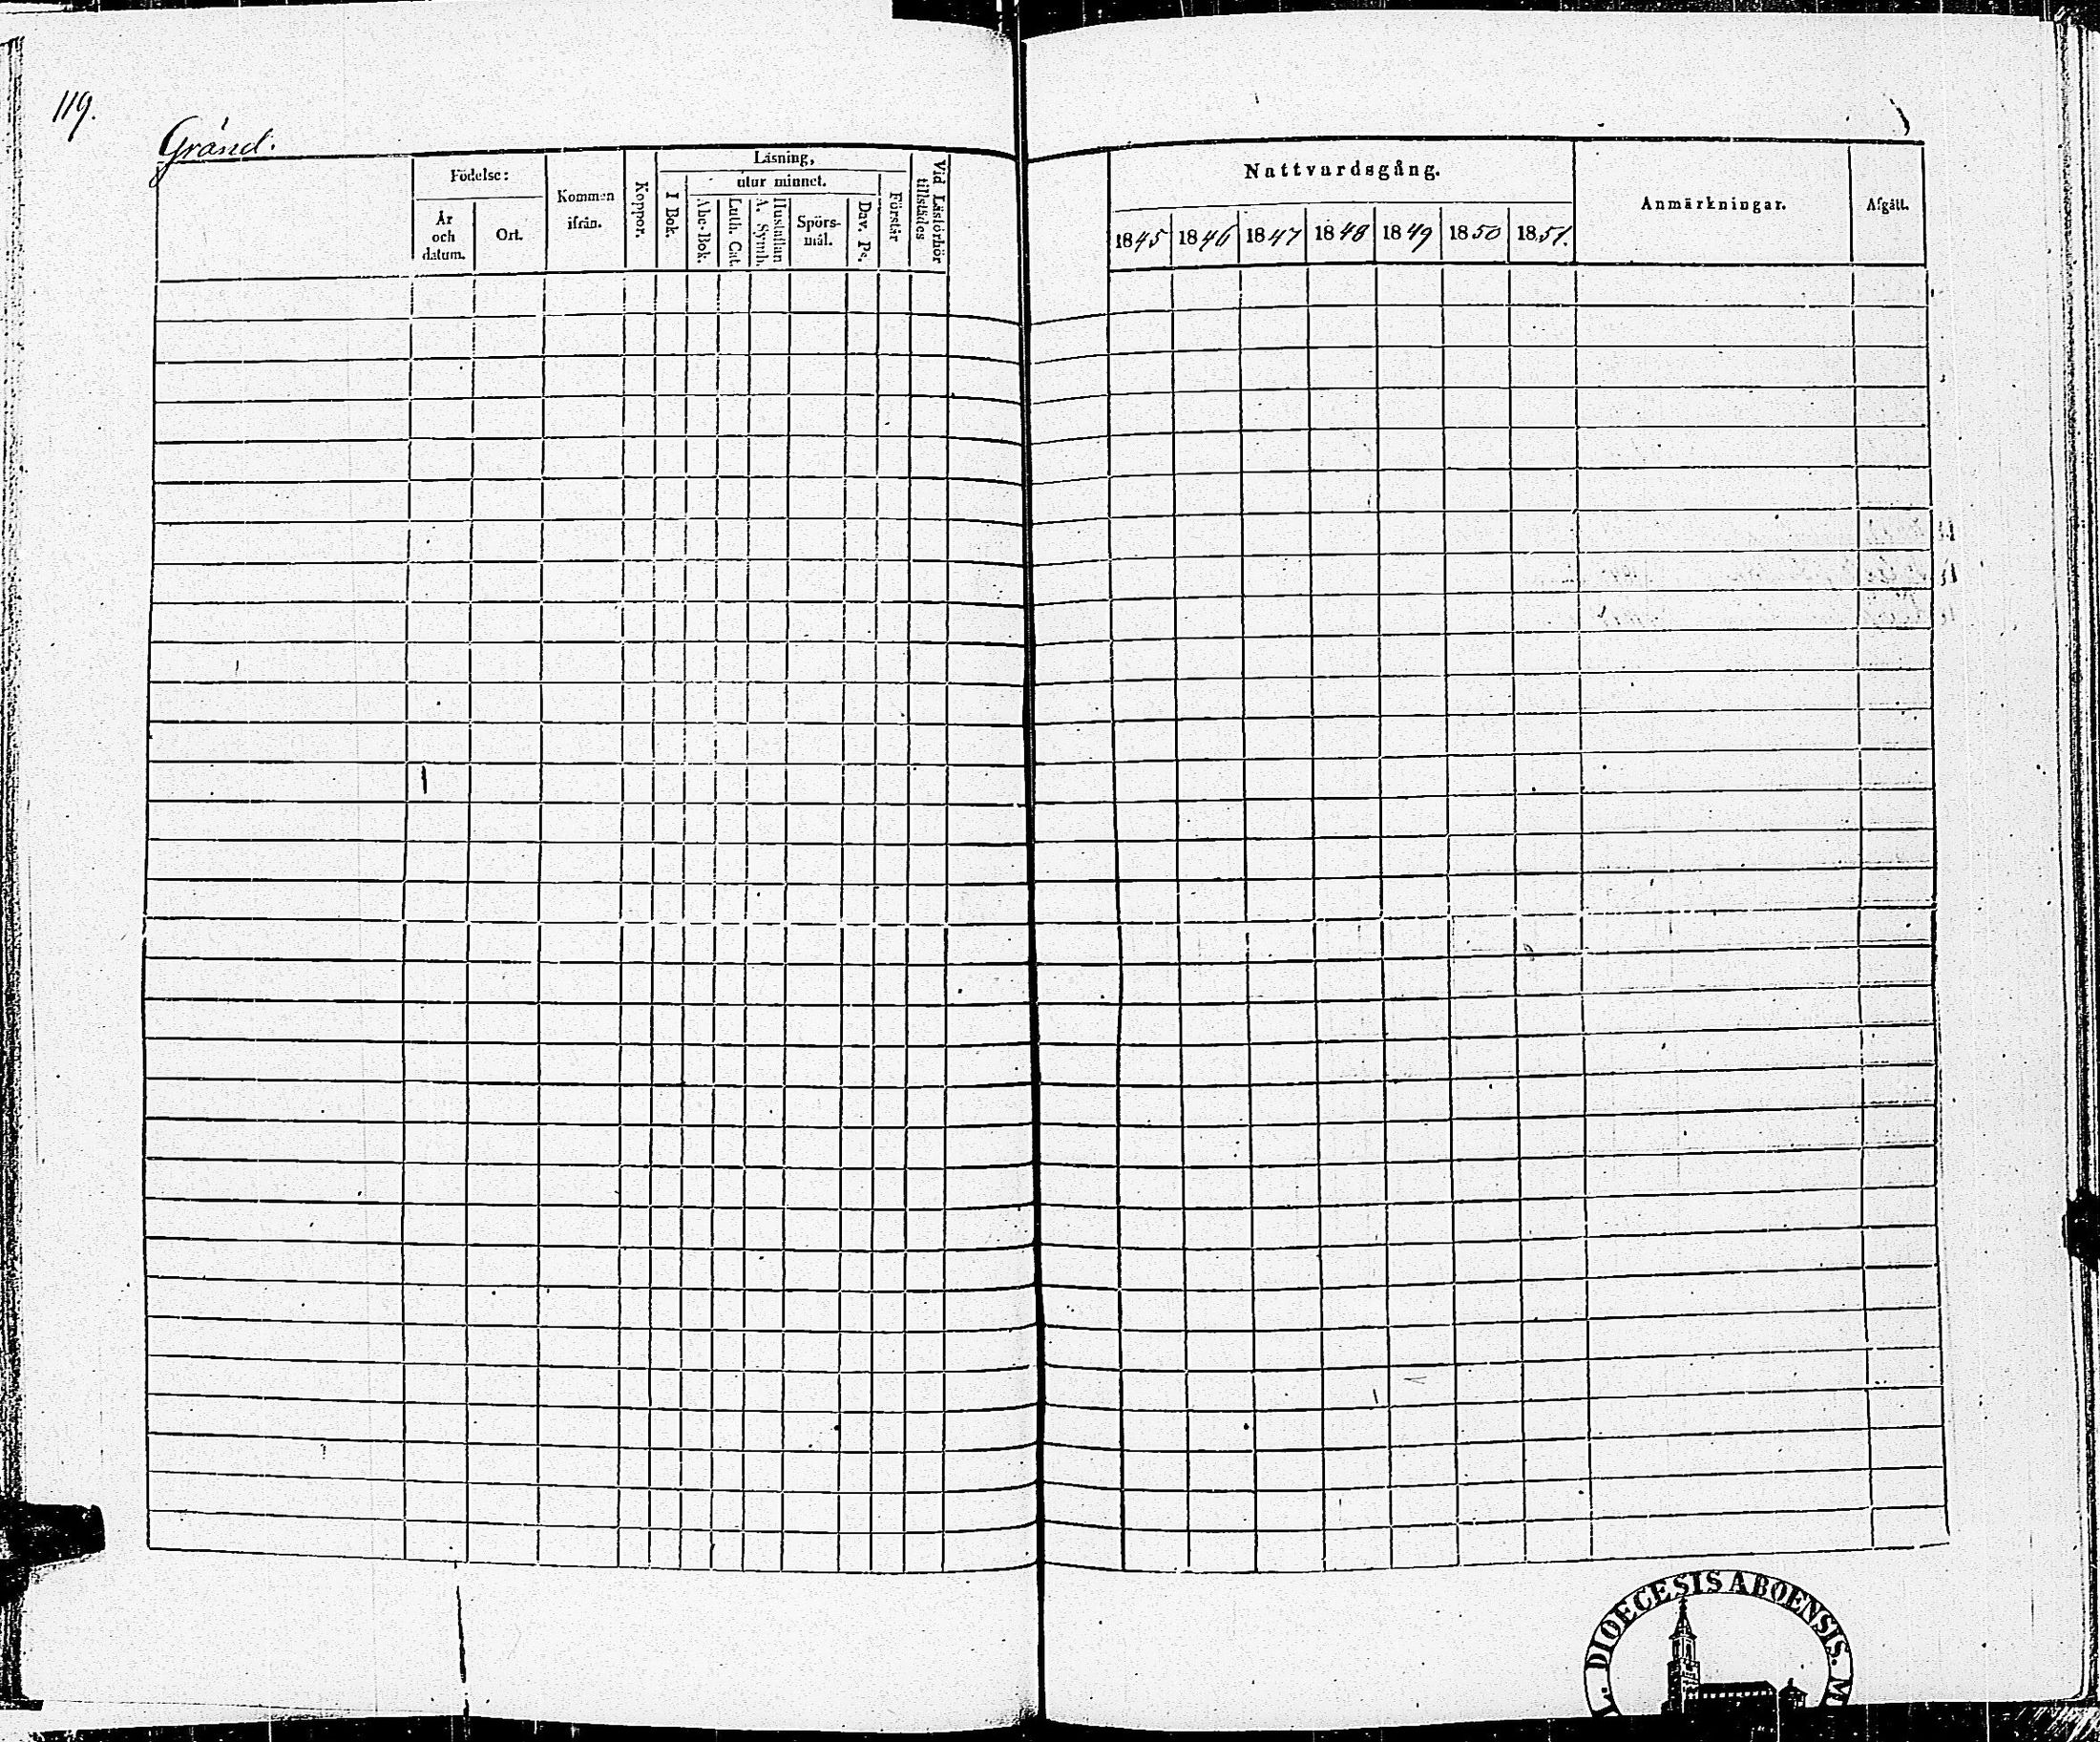 119.
Gränd.
Födelse:
År
och
datum.
Ort.
Kommen
ifrån.
Koppor.
Läsning,
I Bok.
utur minnet.
Abc-Bok.
Luth. Cat.
Hustaflan
A. Symb.
Spörs-
mål.
Dav. Ps.
Förstår
Vid Läsförhör
tillstädes
Nattvardsgång.
1845 1846 1847 1848 1849 1850 1851.
Anmärkningar.
Afgått.
DIOECESIS ABOENSIS. M